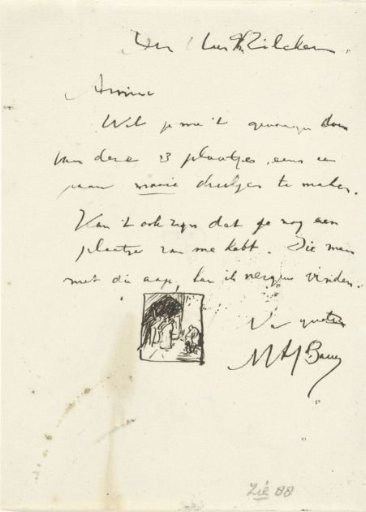 Den Heer Ph Zilcken.
Amice
Wil je me 't genoegen doen
van deze 3 plaatjes, eens een
paar mooie drukjes te maken.
Kan 't ook zijn dat je nog een
plaatje van me hebt. Die man
met die aap, kan ik nergens vinden.
M A J Bauer
Zie 88